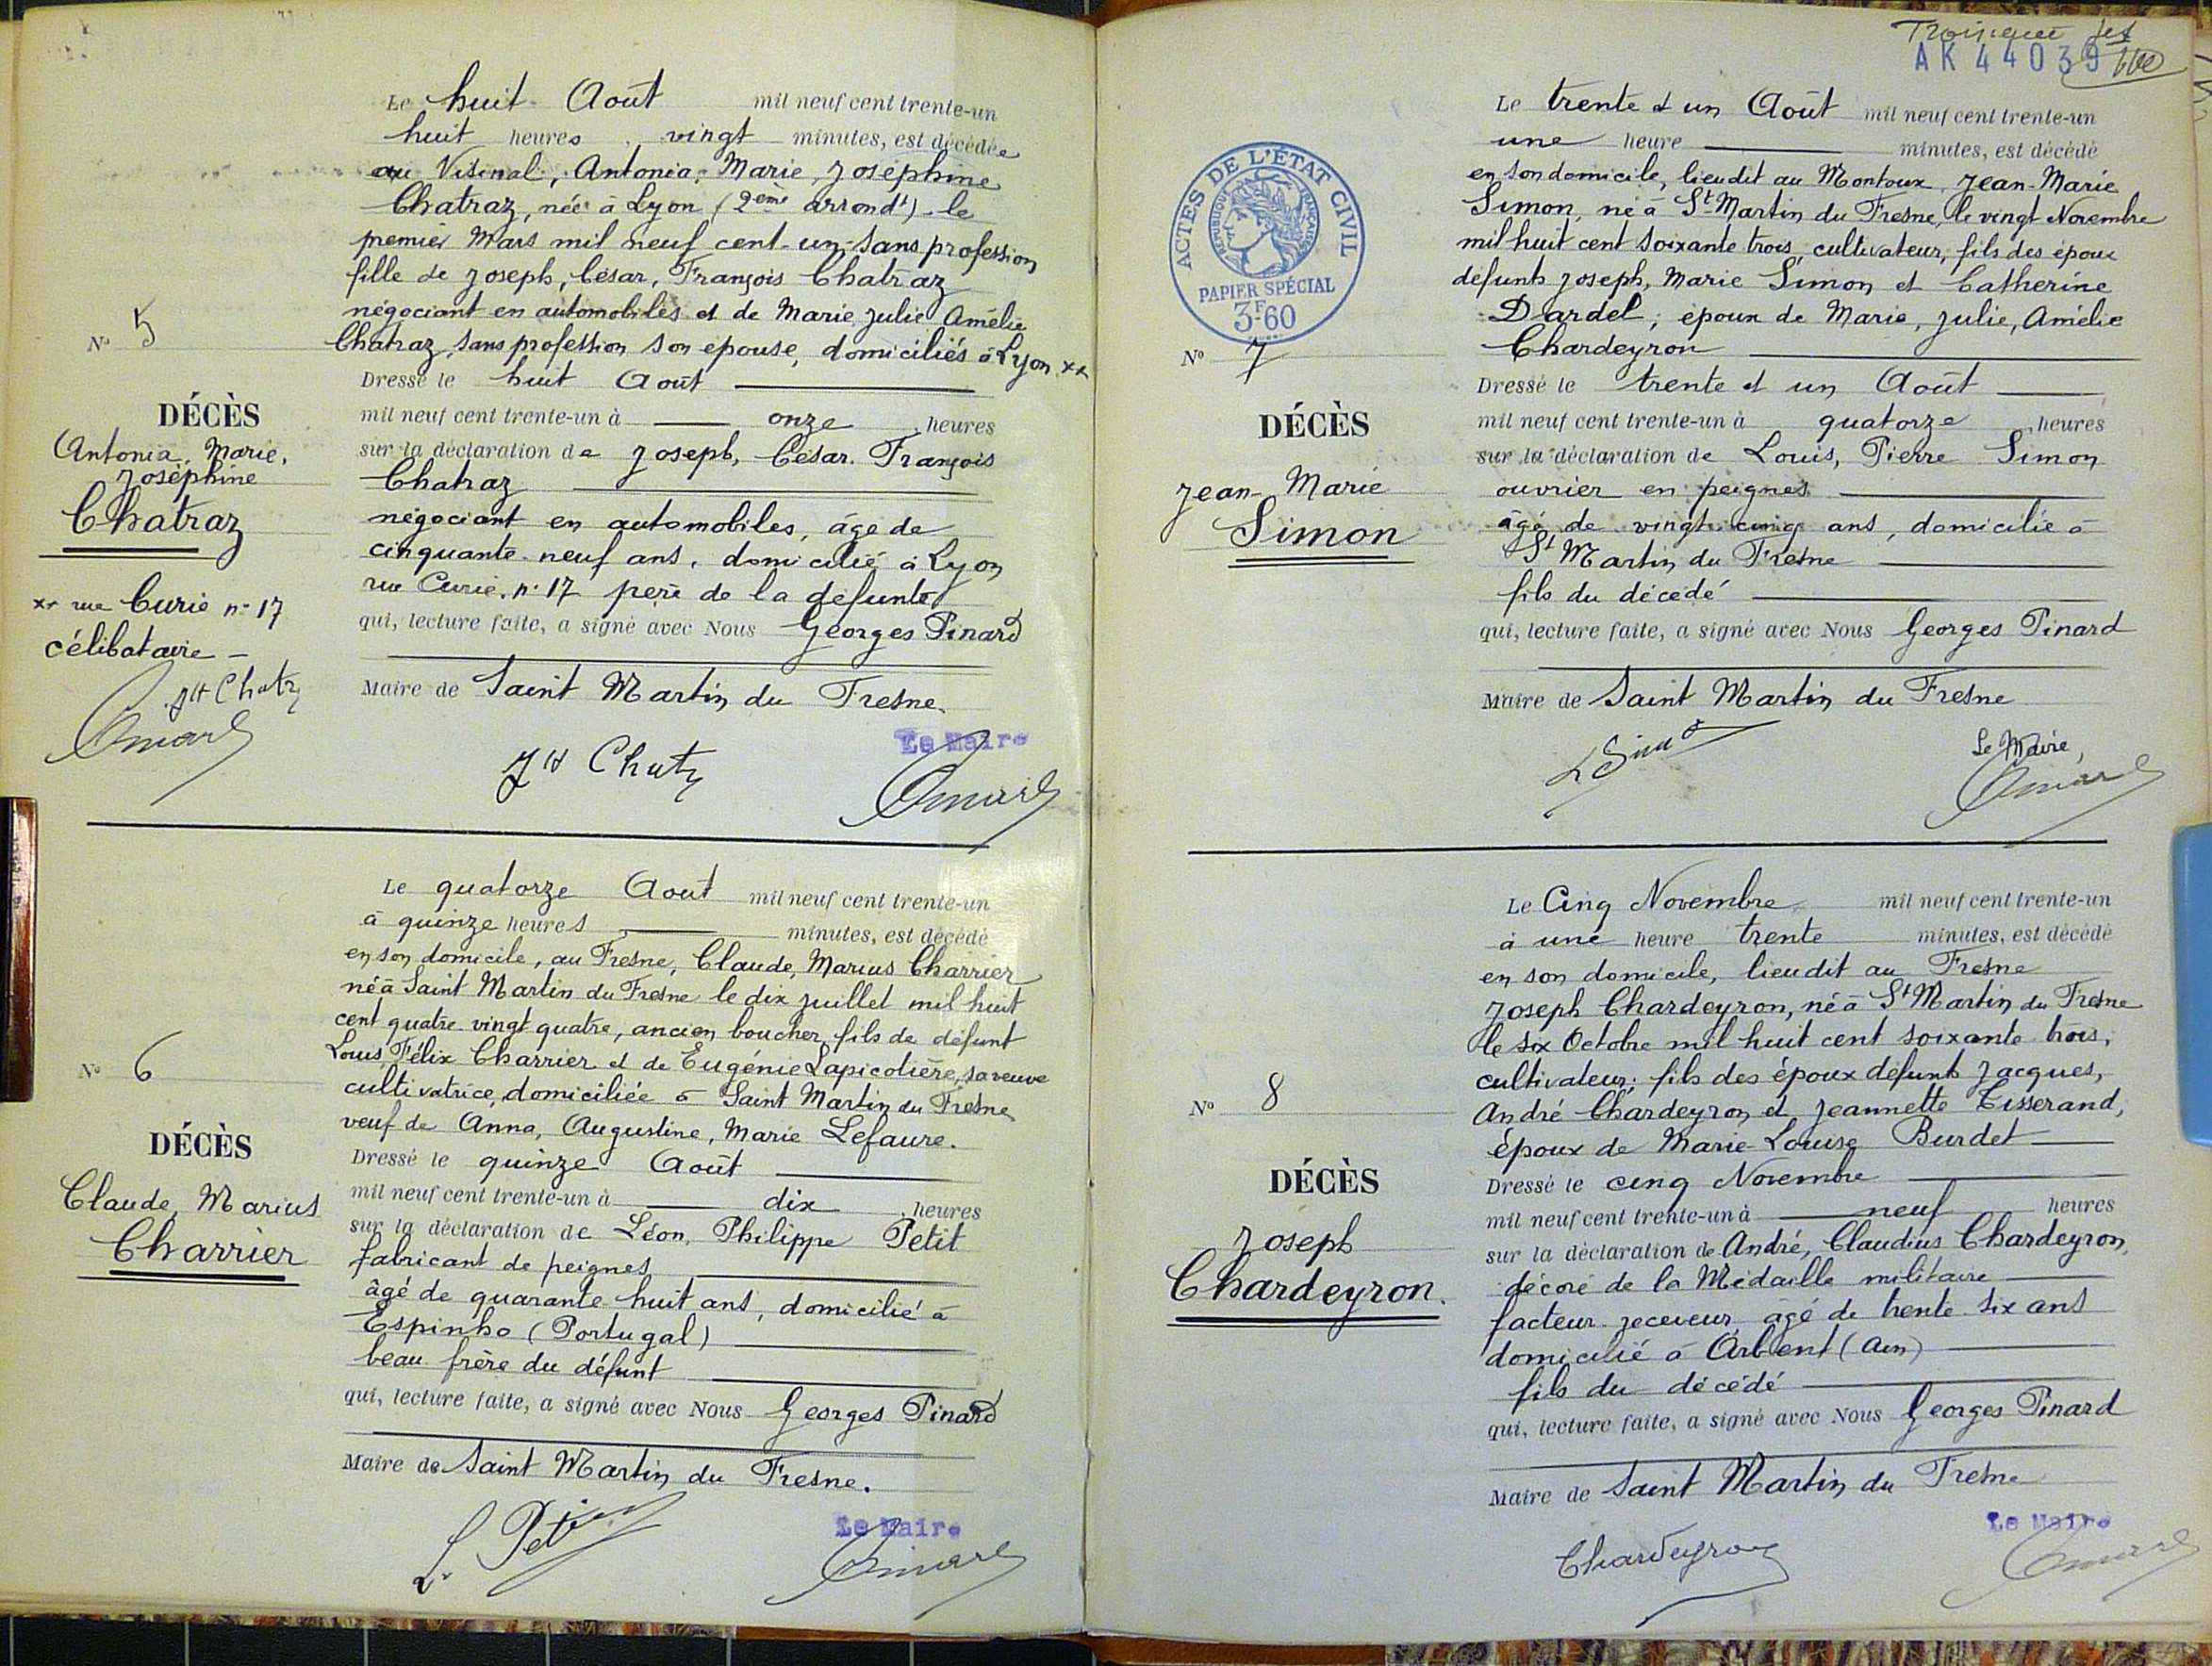 Le huit Août mil neuf cent trente-un
huit heures vingt minutes, est décédée
au Visinal, Antonia, Marie, Joséphine
Chatraz, née à Lyon (2ème arrondt) le
premier Mars mil neuf cent-un, sans profession
fille de Joseph, César, François Chatraz
négociant en automobiles et de Marie Julie Amélie
Chatraz, sans profession son épouse, domiciliés à Lyon xx
Dressé le huit Août
mil neuf cent trente-un à onze heures
sur la déclaration de Joseph, César. François
Chatraz
négociant en automobiles, âgé de
cinquante-neuf ans, domicilié à Lyon
rue Curie, n° 17 père de la défunte
qui, lecture faite, a signé avec Nous Georges Pinard
Maire de Saint Martin du Fresne.
Le Maire
N° 5
DÉCÈS
Antonia, Marie,
Joséphine
Chatraz
xx rue Curie n° 17
célibataire
Le quatorze Août mil neuf cent trente-un
à quinze heures minutes, est décédé
en son domicile, au Fresne, Claude, Marius Charrier
né à Saint Martin du Fresne le dix juillet mil huit
cent quatre vingt quatre, ancien boucher, fils de défunt
Louis Félix Charrier et de Eugénie Lapicotière, sa veuve
cultivatrice, domiciliée à Saint Martin du Fresne
veuf de Anna, Augustine, Marie Lefaure.
Dressé le quinze Août
mil neuf cent trente-un à dix heures
sur la déclaration de Léon, Philippe Petit
fabricant de peignes
âgé de quarante-huit ans, domicilié à
Espinho (Portugal)
beau-frère du défunt
qui, lecture faite, a signé avec Nous Georges Pinard
Maire de Saint Martin du Fresne.
L. Petit
Le Maire
N° 6
DÉCÈS
Claude, Marius
Charrier
AK 44039
ACTES DE L'ÉTAT CIVIL
RÉPUBLIQUE FRANÇAISE
PAPIER SPÉCIAL
3F60
Le trente et un Août mil neuf cent trente-un
une heure minutes, est décédé
en son domicile, lieudit au Montoux, Jean-Marie
Simon, né à St-Martin du Fresne, le vingt Novembre
mil huit cent soixante trois, cultivateur, fils des époux
défunts Joseph, Marie Simon et Catherine
Dardel; époux de Marie, Julie, Amélie
Chardeyron
Dressé le trente et un Août
mil neuf cent trente-un à quatorze heures
sur la déclaration de Louis, Pierre Simon
ouvrier en peignes
âgé de vingt-cinq ans, domicilié à
St Martin du Fresne
fils du décédé
qui, lecture faite, a signé avec Nous Georges Pinard
Maire de Saint Martin du Fresne
Le Maire,
N° 7
DÉCÈS
Jean-Marie
Simon
Le Cinq Novembre mil neuf cent trente-un
à une heure trente minutes, est décédé
en son domicile, lieudit au Fresne
Joseph Chardeyron, né à St Martin du Fresne
le six Octobre mil huit cent soixante trois,
cultivateur; fils des époux défunts Jacques,
André Chardeyron et Jeannette Tisserand,
époux de Marie-Louise Burdet
Dressé le cinq Novembre
mil neuf cent trente-un à neuf heures
sur la déclaration de André, Claudius Chardeyron,
décoré de la Médaille militaire
facteur receveur, âgé de trente six ans
domicilié à Arbent (Ain)
fils du décédé
qui, lecture faite, a signé avec Nous Georges Pinard
Maire de Saint Martin du Fresne
Chardeyron
Le Maire
N° 8
DÉCÈS
Joseph
Chardeyron.